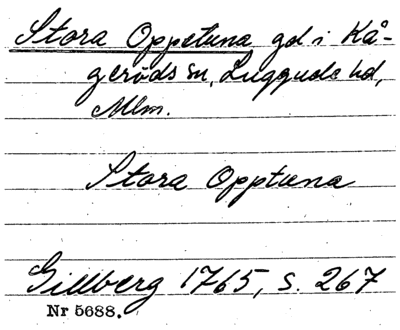 Stora Oppetuna gd i Kå-
geröds sn, Luggude hd,
Mlm.
Stora Opptuna
Gillberg 1765, s. 267
Nr 5688.